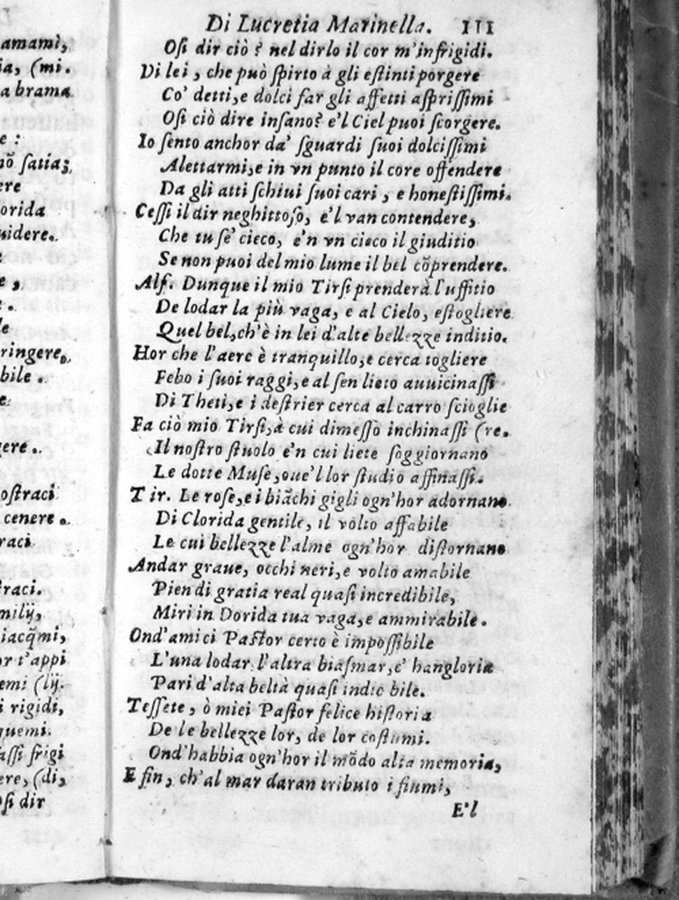 amamì,
ia, (mi.
a brama
e :
nõ satia;
ere
orida
uidere.
e ,
e .
le
ringere,
bile .
e.
gere .
ostraci
cenere .
raci
raci.
milij,
iacq̃mi,
or t'appi
emi (lij.
i rigidi,
quemi.
assi frigi
ere, (di,
Osi dir
Di Lucretia Marinella. 111
Osi dir ciò ? nel dirlo il cor m'infrigidi.
Di lei , che può spirto à gli estinti porgere
Co' detti, e dolci far gli affetti asprissimi
Osi ciò dire insano? e'l Ciel puoi scorgere.
Io sento anchor da' sguardi suoi dolcissimi
Alettarmi, e in vn punto il core offendere
Da gli atti schiui suoi cari , e honestissimi.
Cessi il dir neghittoso, e'l van contendere,
Che tu se' cieco, e'n vn cieco il giuditio
Se non puoi del mio lume il bel cõprendere.
Alf. Dunque il mio Tirsi prenderà l'uffitio
De lodar la più vaga, e al Cielo, estogliere
Quel bel, ch'è in lei d'alte bellezze inditio.
Hor che l'aere è tranquillo, e cerca togliere
Febo i suoi raggi, e al sen lieto auuicinassi
Di Theti, e i destrier cerca al carro scioglie
Fa ciò mio Tirsi, à cui dimesso inchinassi (re.
Il nostro stuolo e'n cui liete soggiornano
Le dotte Muse, oue'l lor studio affinassi.
Tir. Le rose, e i biãchi gigli ogn'hor adornano
Di Clorida gentile, il volto affabile
Le cui bellezze l'alme ogn'hor distornano
Andar graue, occhi neri, e volto amabile
Pien di gratia real quasi incredibile,
Miri in Dorida tua vaga, e ammirabile .
Ond'amici Pastor certo è impossibile
L'una lodar, l'altra biasmar, e' hangloria
Pari d'alta beltà quasi indic bile.
Tessete , ò miei Pastor felice historia
De le bellezze lor, de lor costumi.
Ond'habbia ogn'hor il mõdo alta memoria,
E fin, ch'al mar daran tributo i fiumi,
E'l